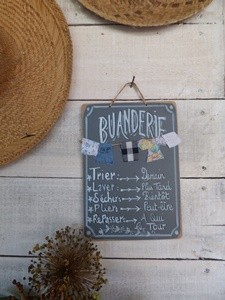 BUANDERIE
Trier Demain
Laver Plus Tard
Sécher Bientôt
Plier Peut-être
Repasser A Qui
Le Tour